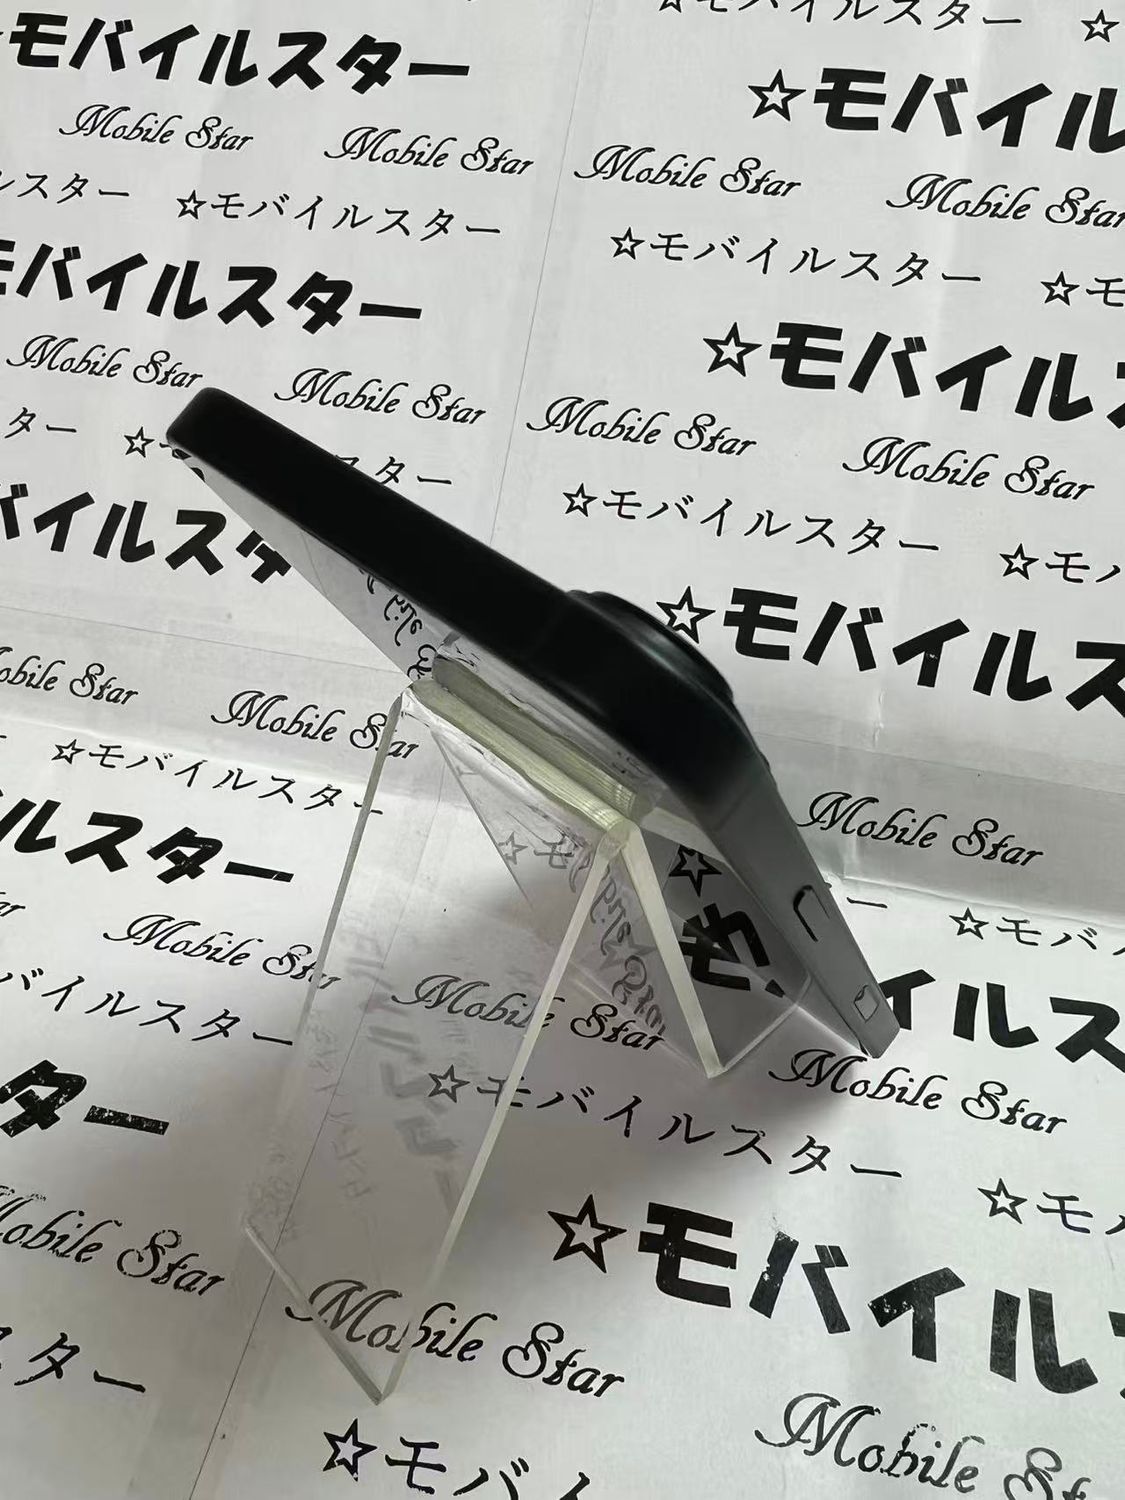 モバイルスター
Mobile Star Mobile Star
ルスター ☆モバイルスター
モバイルスター
Mobile Star Mobile Star
ター
モバイルスタ
Mobile Star Mobile Star
☆モバイルスター
ルスター
Mobile Star
モバイルスター
ター
Mobile Star
スター
☆モバイル
Mobile Star Mobile Star
☆モバイルスター ☆モ
☆モバイル
Mobile Star Mobile Star
☆モバイルスター ☆モバ
☆モバイルス
Mobile Star
☆モバ
イルス
Mobile Star Mobile Star
☆モバイルスター ☆モ
☆モバイル
Mobile Star Mobile Star
☆モバイ